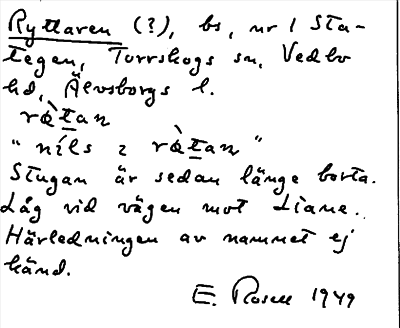 Ryttaren (?), bs, nr 1 Sta-
tegen, Torrskogs sn, Vedbo
hd, Älvsborgs l.
rø̀tan
"nils i rø̀tan"
Stugan är sedan länge borta.
Låg vid vägen mot Liane.
Härledningen av namnet ej
känd.
E. Rosell 1949